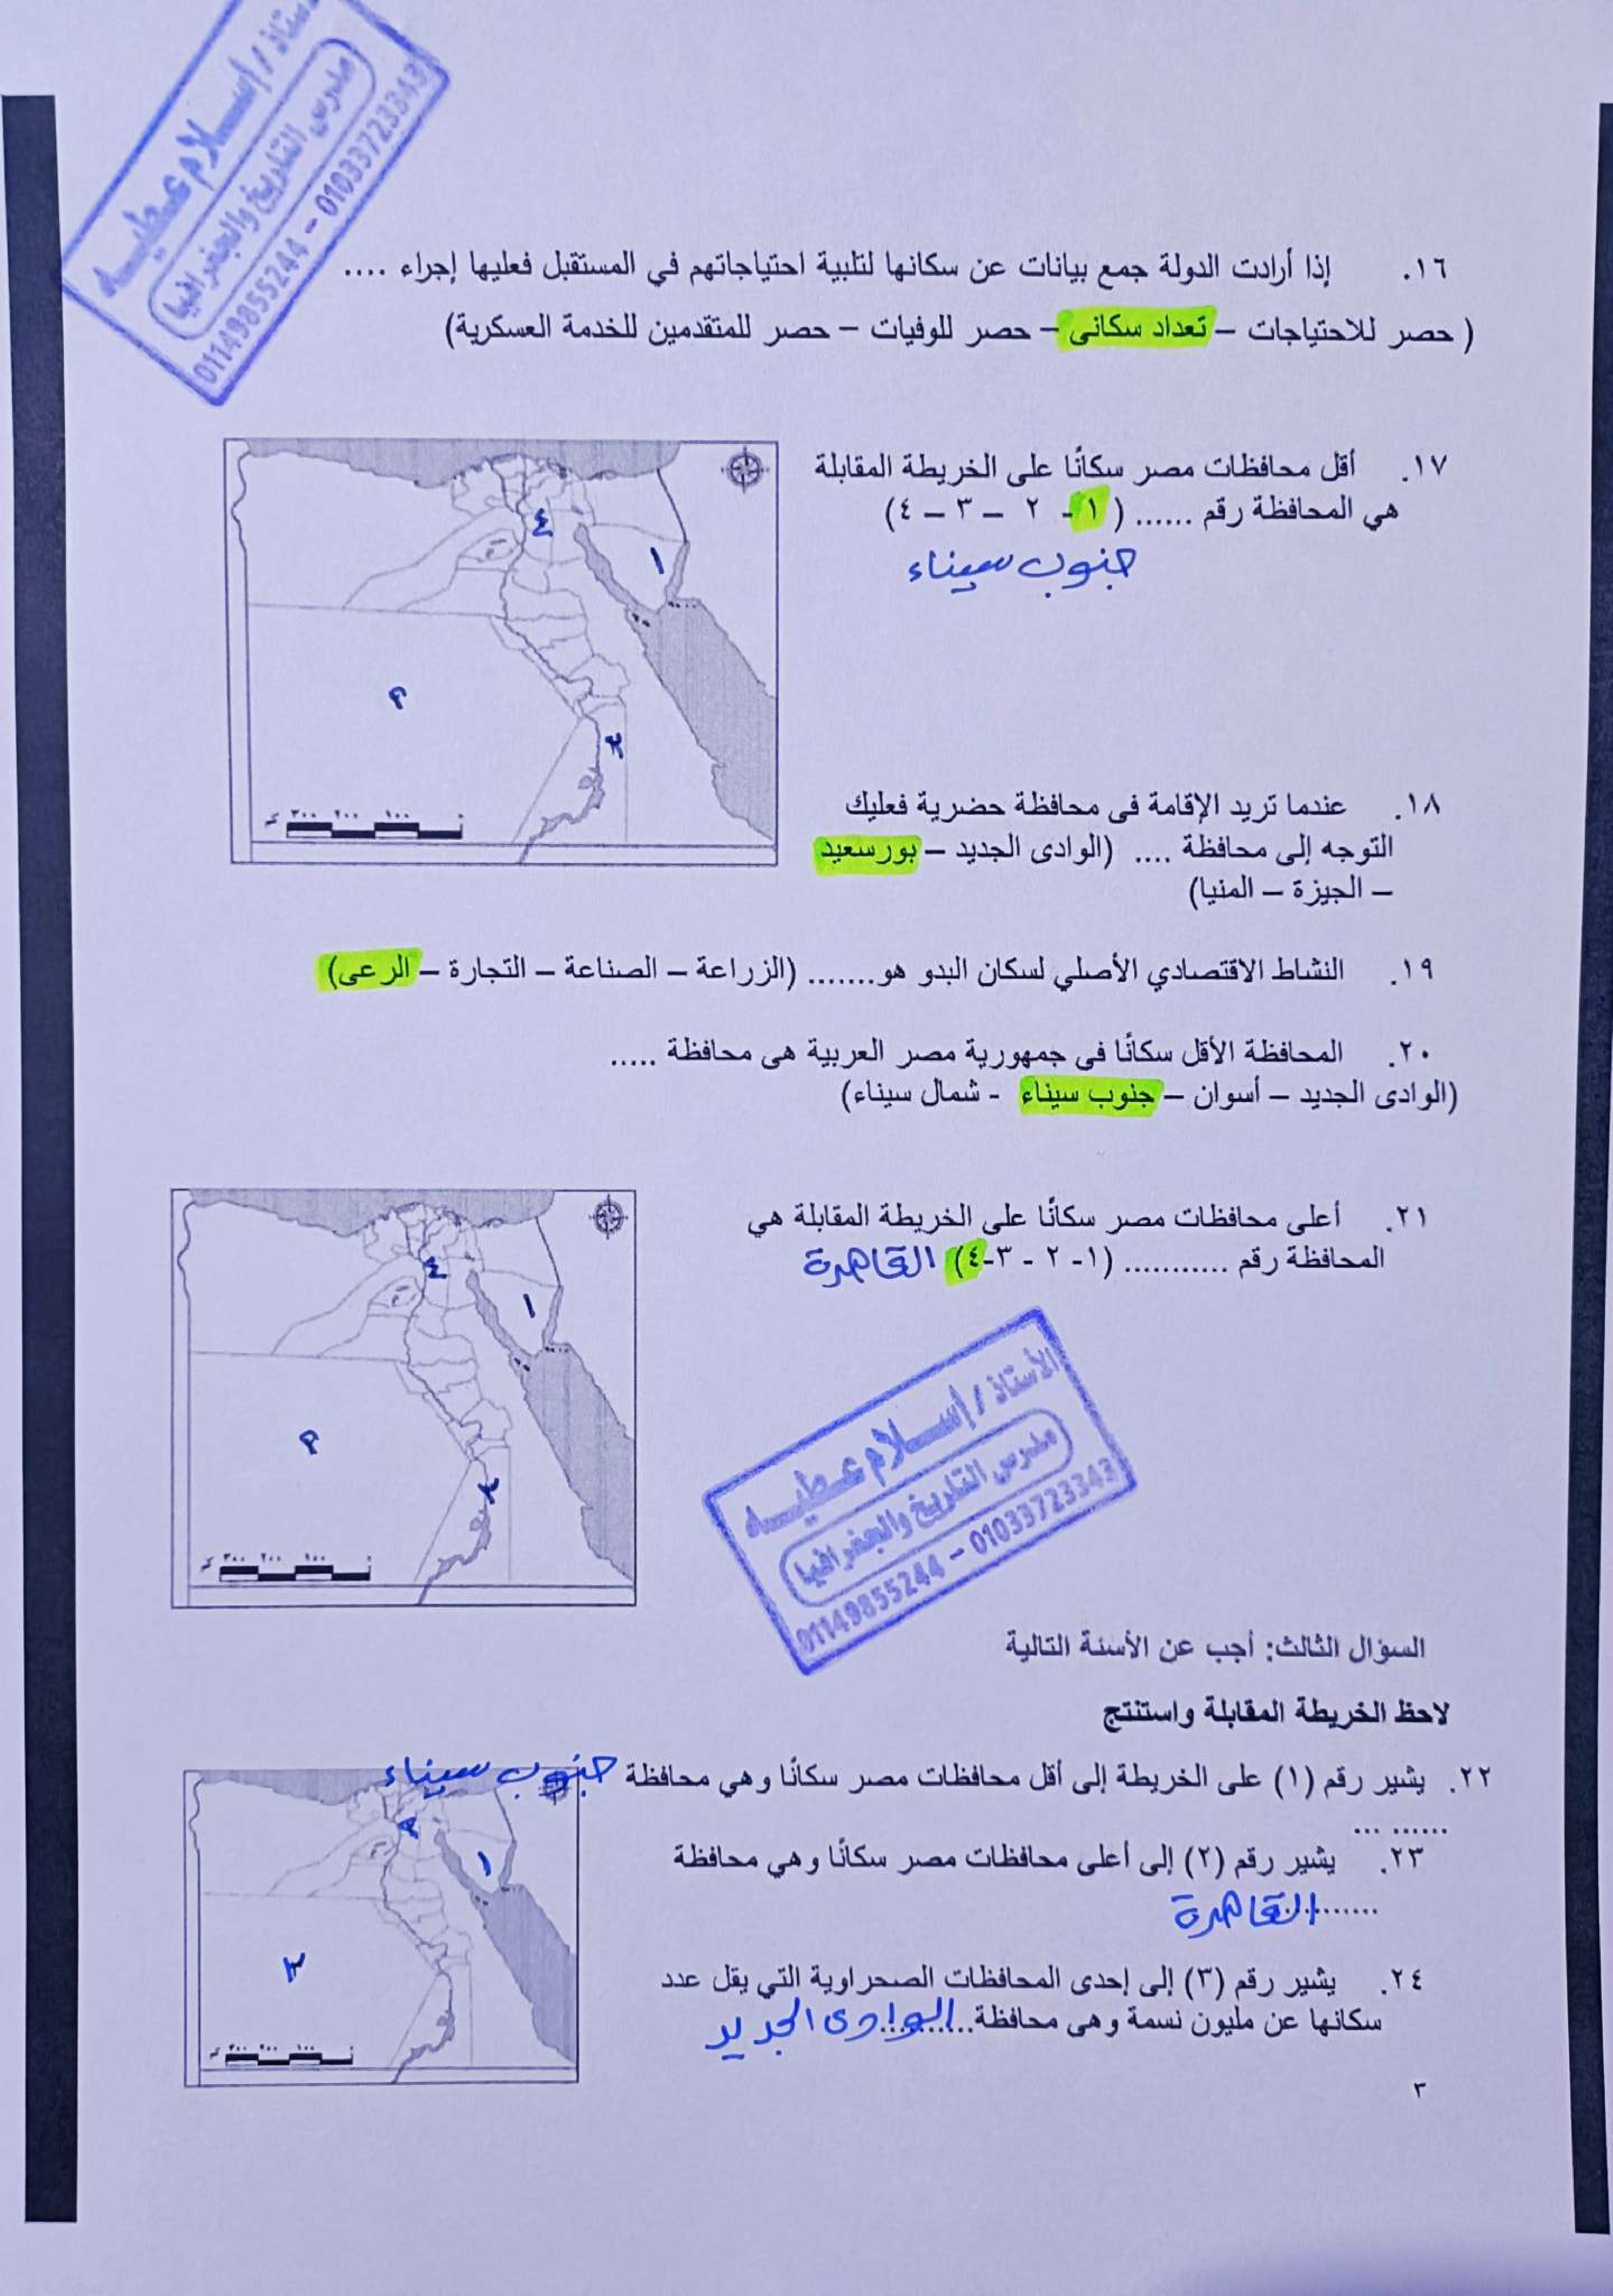 الأستاذ / إسلام عطيه
مدرس التاريخ والجغرافيا
01149855244 - 01033723343
١٦. إذا أرادت الدولة جمع بيانات عن سكانها لتلبية احتياجاتهم في المستقبل فعليها إجراء ....
( حصر للاحتياجات – تعداد سكانى – حصر للوفيات – حصر للمتقدمين للخدمة العسكرية)
١٧. أقل محافظات مصر سكانًا على الخريطة المقابلة
هي المحافظة رقم ...... ( ١- ٢ – ٣ – ٤)
جنوب سيناء
٤
١
٢
٣
٣٠٠ ٢٠٠ ١٠٠ ٠
١٨. عندما تريد الإقامة فى محافظة حضرية فعليك
التوجه إلى محافظة .... (الوادى الجديد – بورسعيد
– الجيزة – المنيا)
١٩. النشاط الاقتصادي الأصلي لسكان البدو هو....... (الزراعة – الصناعة – التجارة – الرعى)
٢٠. المحافظة الأقل سكانًا فى جمهورية مصر العربية هى محافظة .....
(الوادى الجديد – أسوان – جنوب سيناء - شمال سيناء)
٢١. أعلى محافظات مصر سكانًا على الخريطة المقابلة هي
المحافظة رقم ........... (١- ٢ - ٣-٤) القاهرة
٤
١
٢
٣
٣٠٠ ٢٠٠ ١٠٠ ٠
الأستاذ / إسلام عطيه
مدرس التاريخ والجغرافيا
01149855244 - 01033723343
السؤال الثالث: أجب عن الأسئة التالية
لاحظ الخريطة المقابلة واستنتج
٢٢. يشير رقم (١) على الخريطة إلى أقل محافظات مصر سكانًا وهي محافظة جنوب سيناء
...... ...
٢٣. يشير رقم (٢) إلى أعلى محافظات مصر سكانًا وهي محافظة
..........القاهرة
٢٤. يشير رقم (٣) إلى إحدى المحافظات الصحراوية التي يقل عدد
سكانها عن مليون نسمة وهى محافظة..........الوادى الجديد
٢
١
٣
٣٠٠ ٢٠٠ ١٠٠ ٠
٣